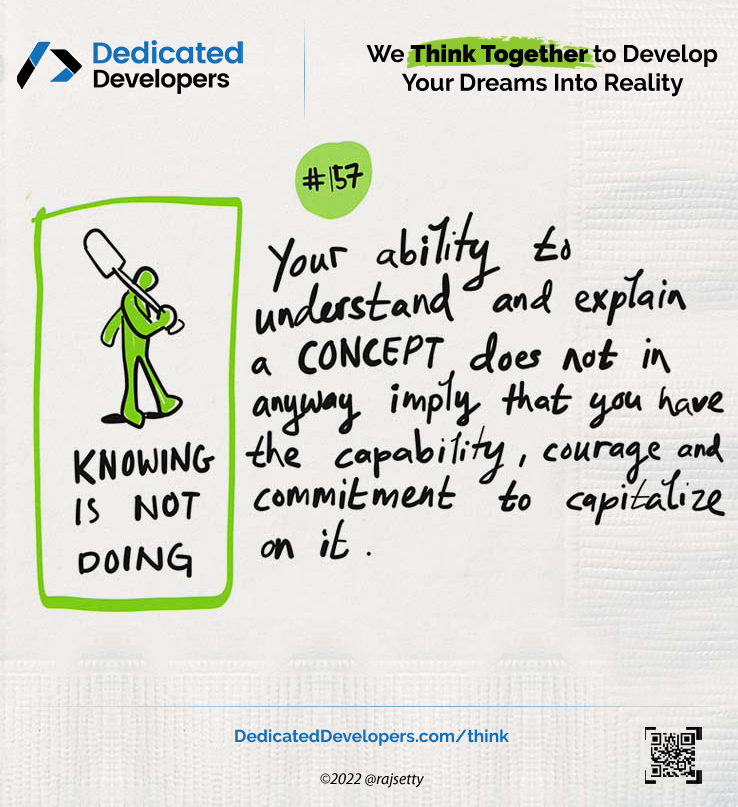 Dedicated
Developers
We Think Together to Develop
Your Dreams Into Reality
#157
KNOWING
IS NOT
DOING
Your ability to
understand and explain
a CONCEPT does not in
anyway imply that you have
the capability, courage and
commitment to capitalize
on it.
DedicatedDevelopers.com/think
©2022 @rajsetty